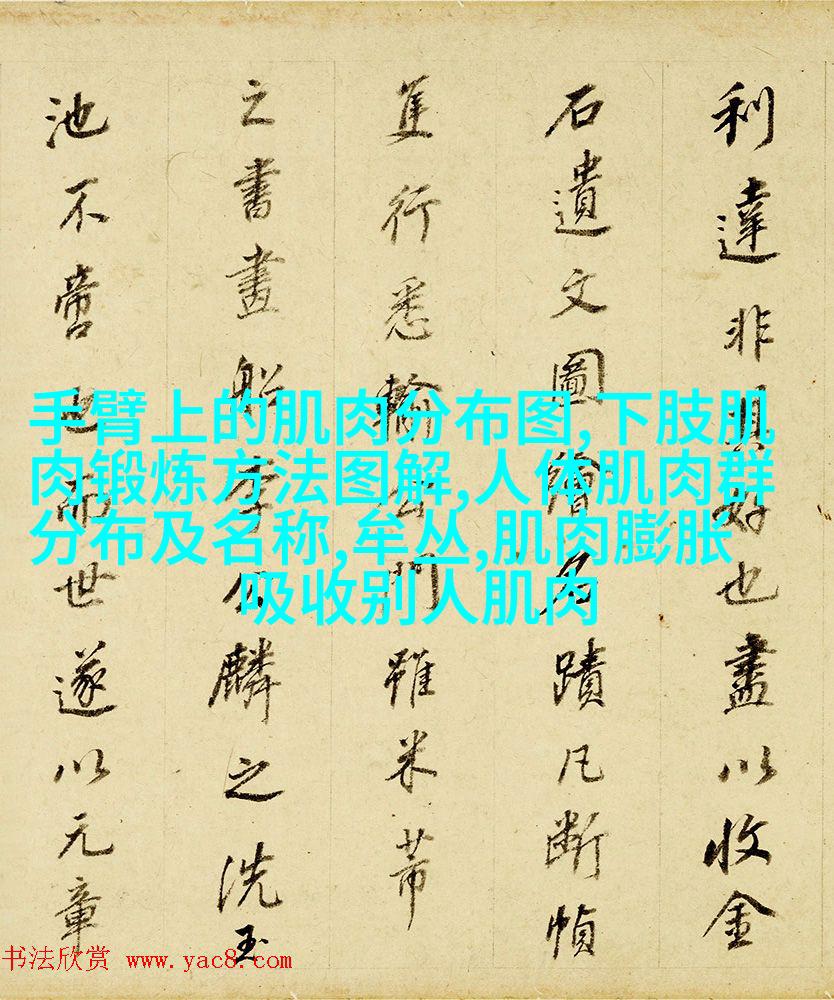 利達非其好也盡以收金
石遺文圖繪名蹟凡斷幀
隻行悉輸門雖米芾
之書畫船李公麟之洗玉
池不啻也而世遂以元章
手臂上的肌肉分布图,下肢肌
肉锻炼方法图解,人体肌肉群
分布及名称,牟丛,肌肉膨胀
吸收别人肌肉
书法欣赏 www.yac8.com